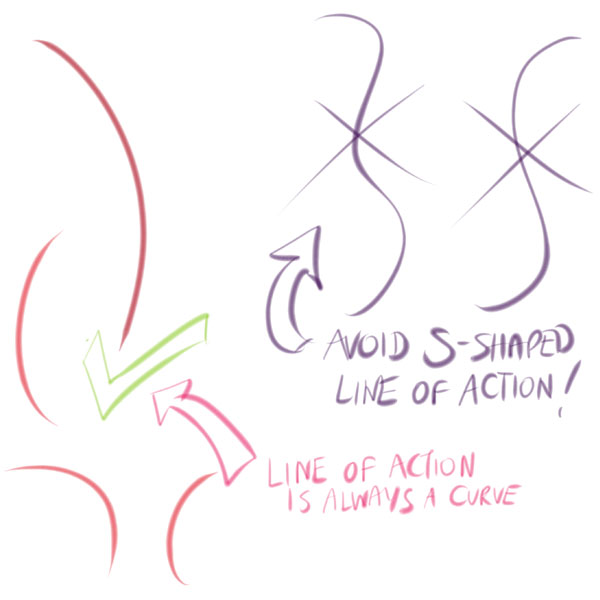 AVOID S-SHAPED
LINE OF ACTION!
LINE OF ACTION
IS ALWAYS A CURVE